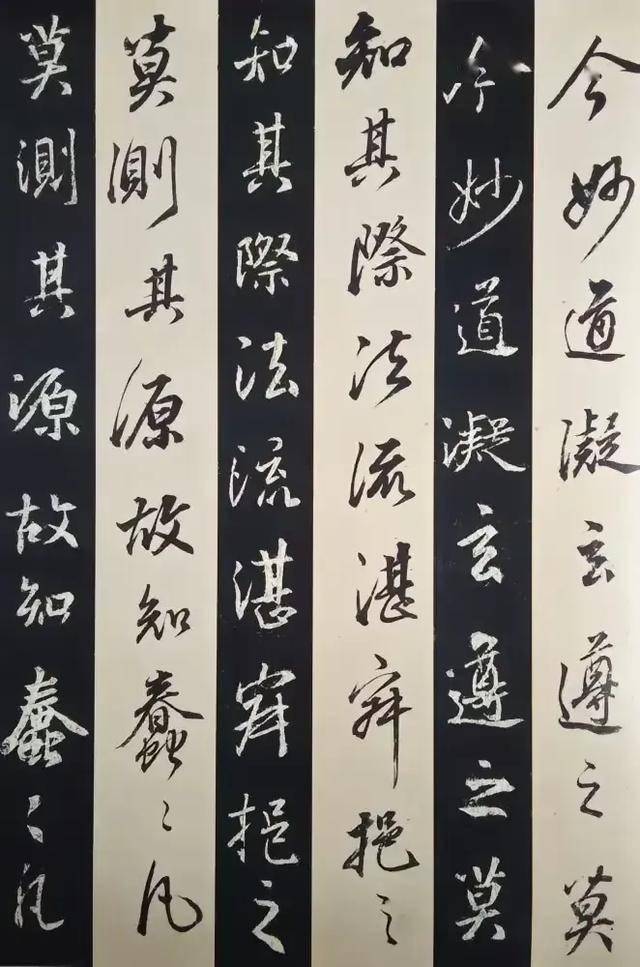 今妙道凝玄遵之莫
今妙道凝玄遵之莫
知其際法流湛寂挹之
知其際法流湛寂挹之
莫測其源故知蠢々凡
莫測其源故知蠢々凡